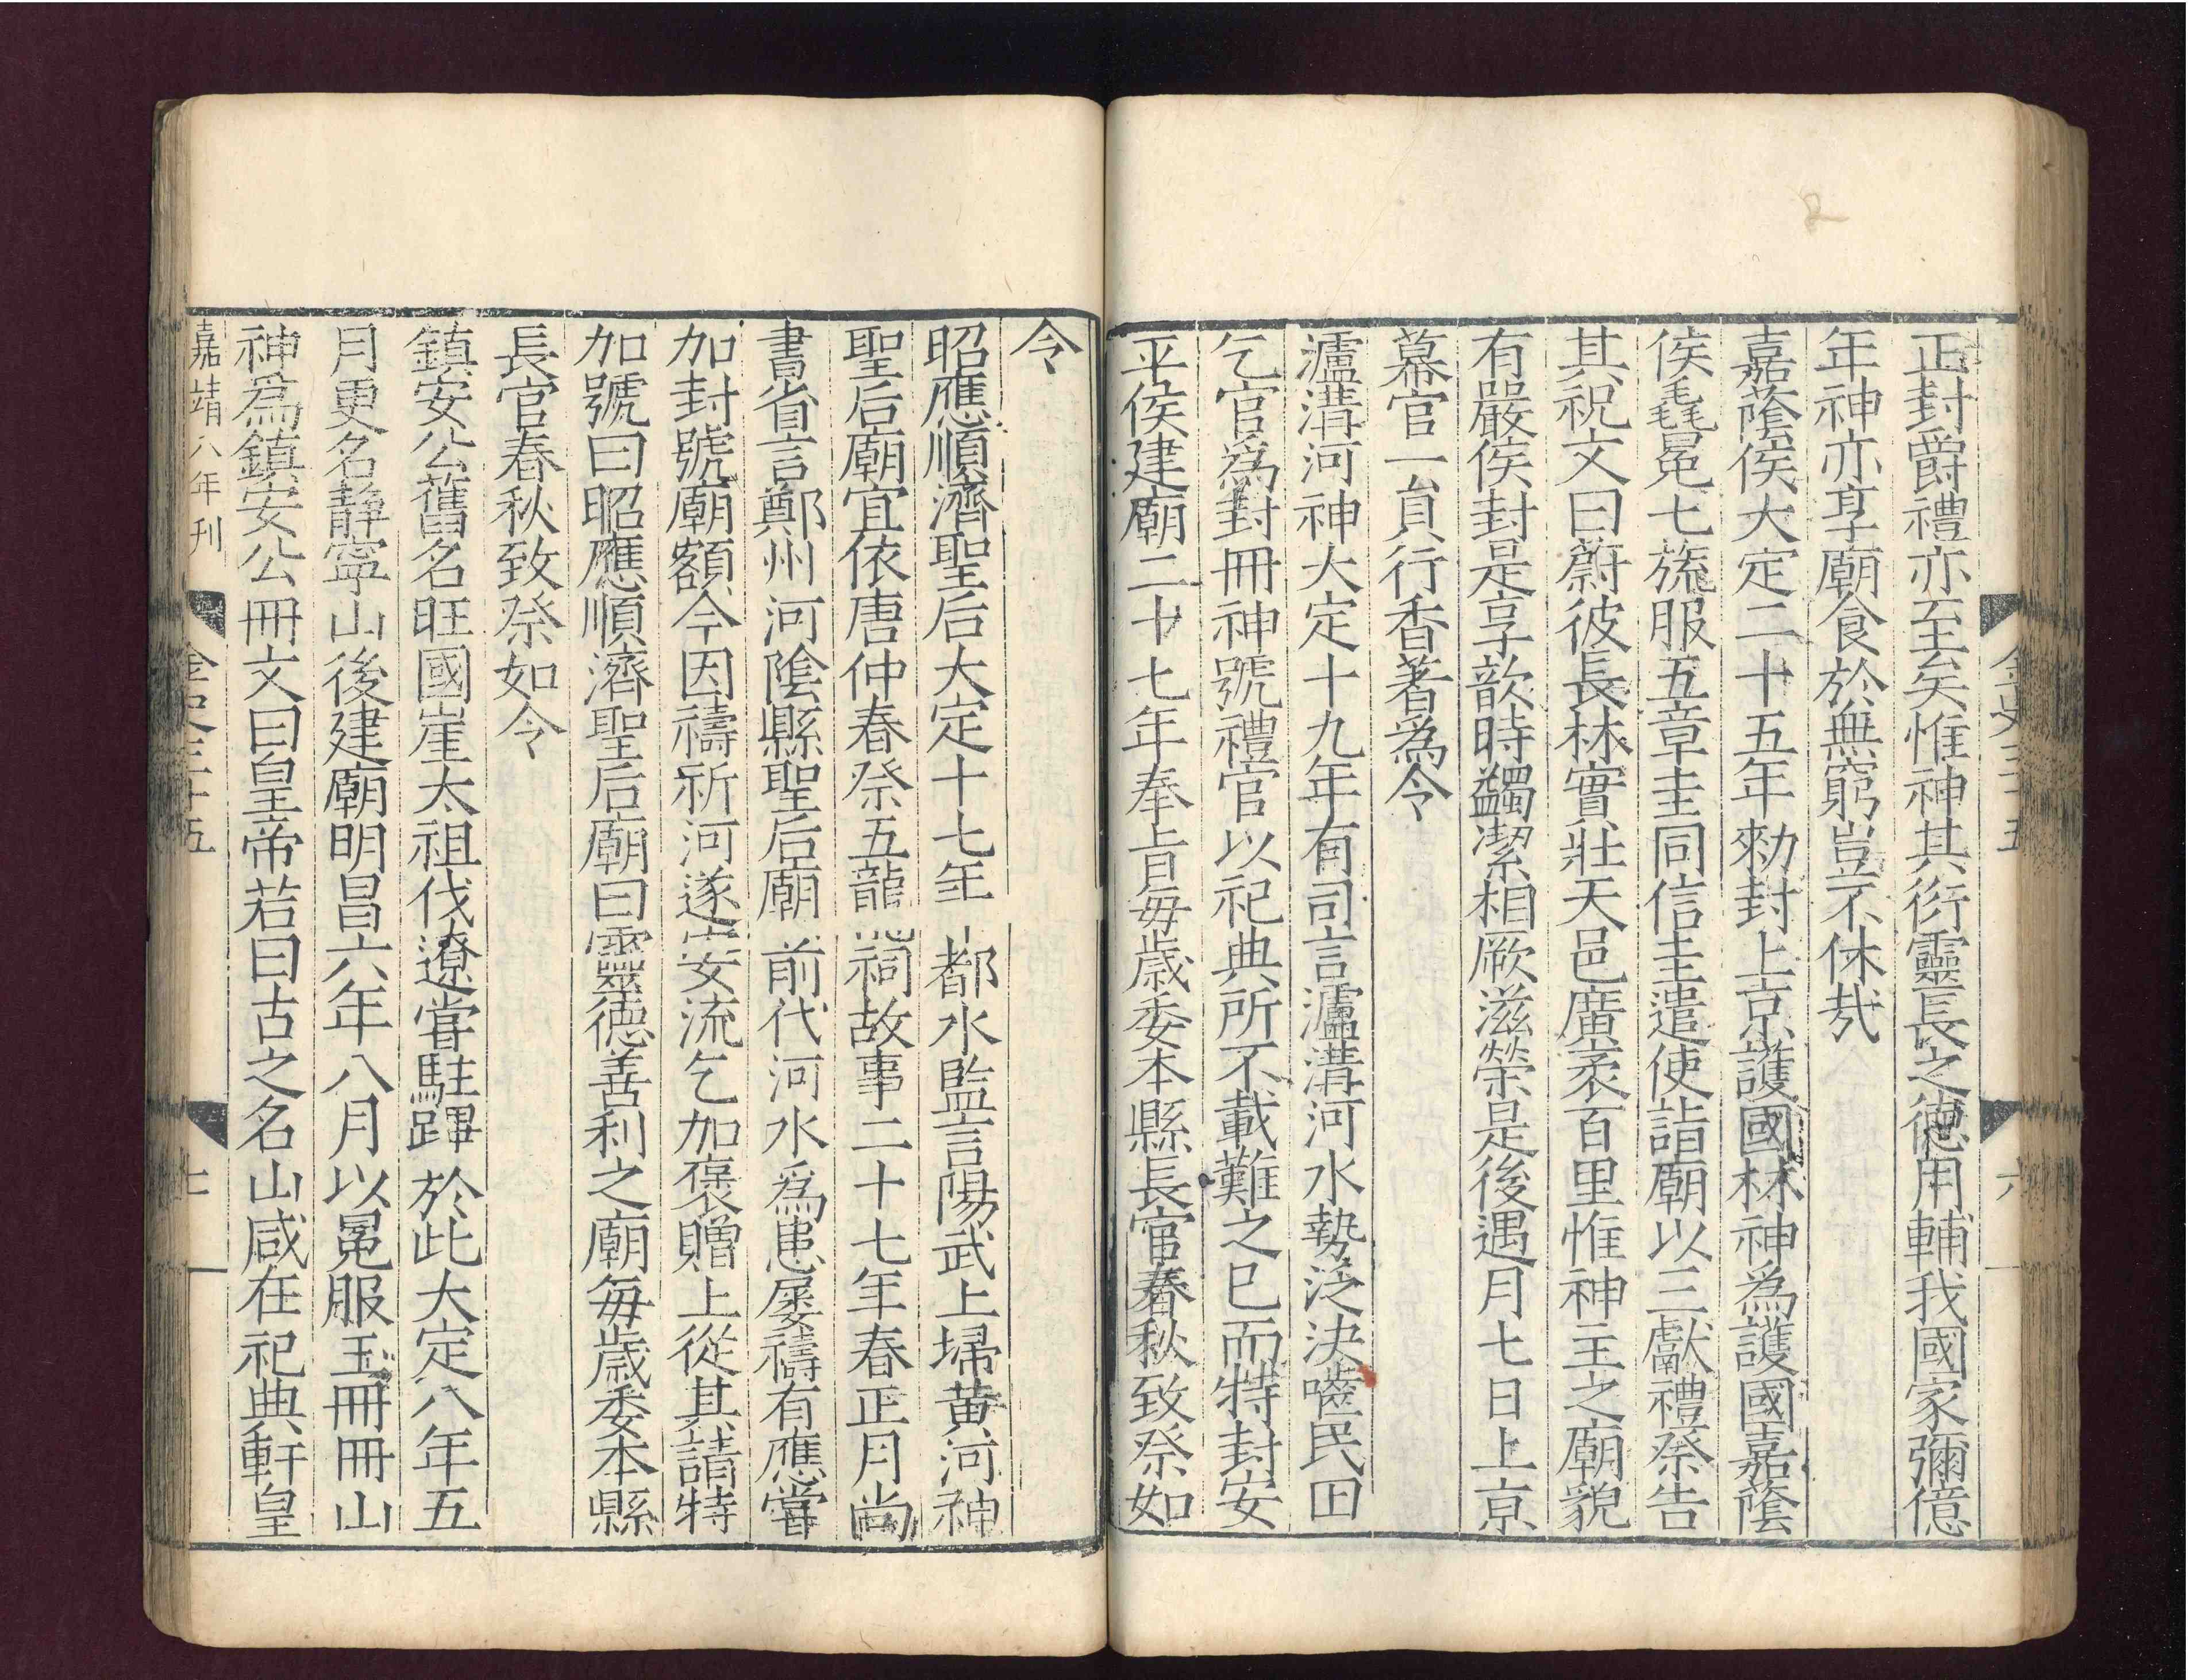 正封爵禮亦至矣惟神其衍靈長之德用輔我國家彌億
年神亦享廟食於無窮豈不休哉
嘉蔭侯大定二十五年勑封上京護國林神為護國嘉蔭
侯毳冕七旒服五章圭同信圭遣使詣廟以三獻禮祭告
其祝文曰蔚彼長林實壯天邑廣袤百里惟神主之廟貌
有嚴侯封是享歆時蠲潔相厥滋榮是後遇月七日上京
幕官一員行香著爲令
瀘溝河神大定十九年有司言瀘溝河水勢泛決嚙民田
乞官爲封冊神號禮官以祀典所不載難之已而特封安
平侯建廟二十七年奉旨每歲委本縣長官春秋致祭如
令
昭應順濟聖后大定十七年都水監言陽武上埽黃河神
聖后廟宜依唐仲春祭五龍祠故事二十七年春正月尚
書省言鄭州河陰縣聖后廟前代河水爲患屢禱有應嘗
加封號廟額今因禱祈河遂安流乞加褒贈上從其請特
加號曰昭應順濟聖后廟曰靈德善利之廟每歲委本縣
長官春秋致祭如令
鎮安公舊名旺國崖太祖伐遼嘗駐蹕於此大定八年五
月更名靜寧山後建廟明昌六年八月以冕服玉冊冊山
神爲鎮安公冊文曰皇帝若曰古之名山咸在祀典軒皇
嘉靖八年刊
金史三十五
七
金史三十五
六